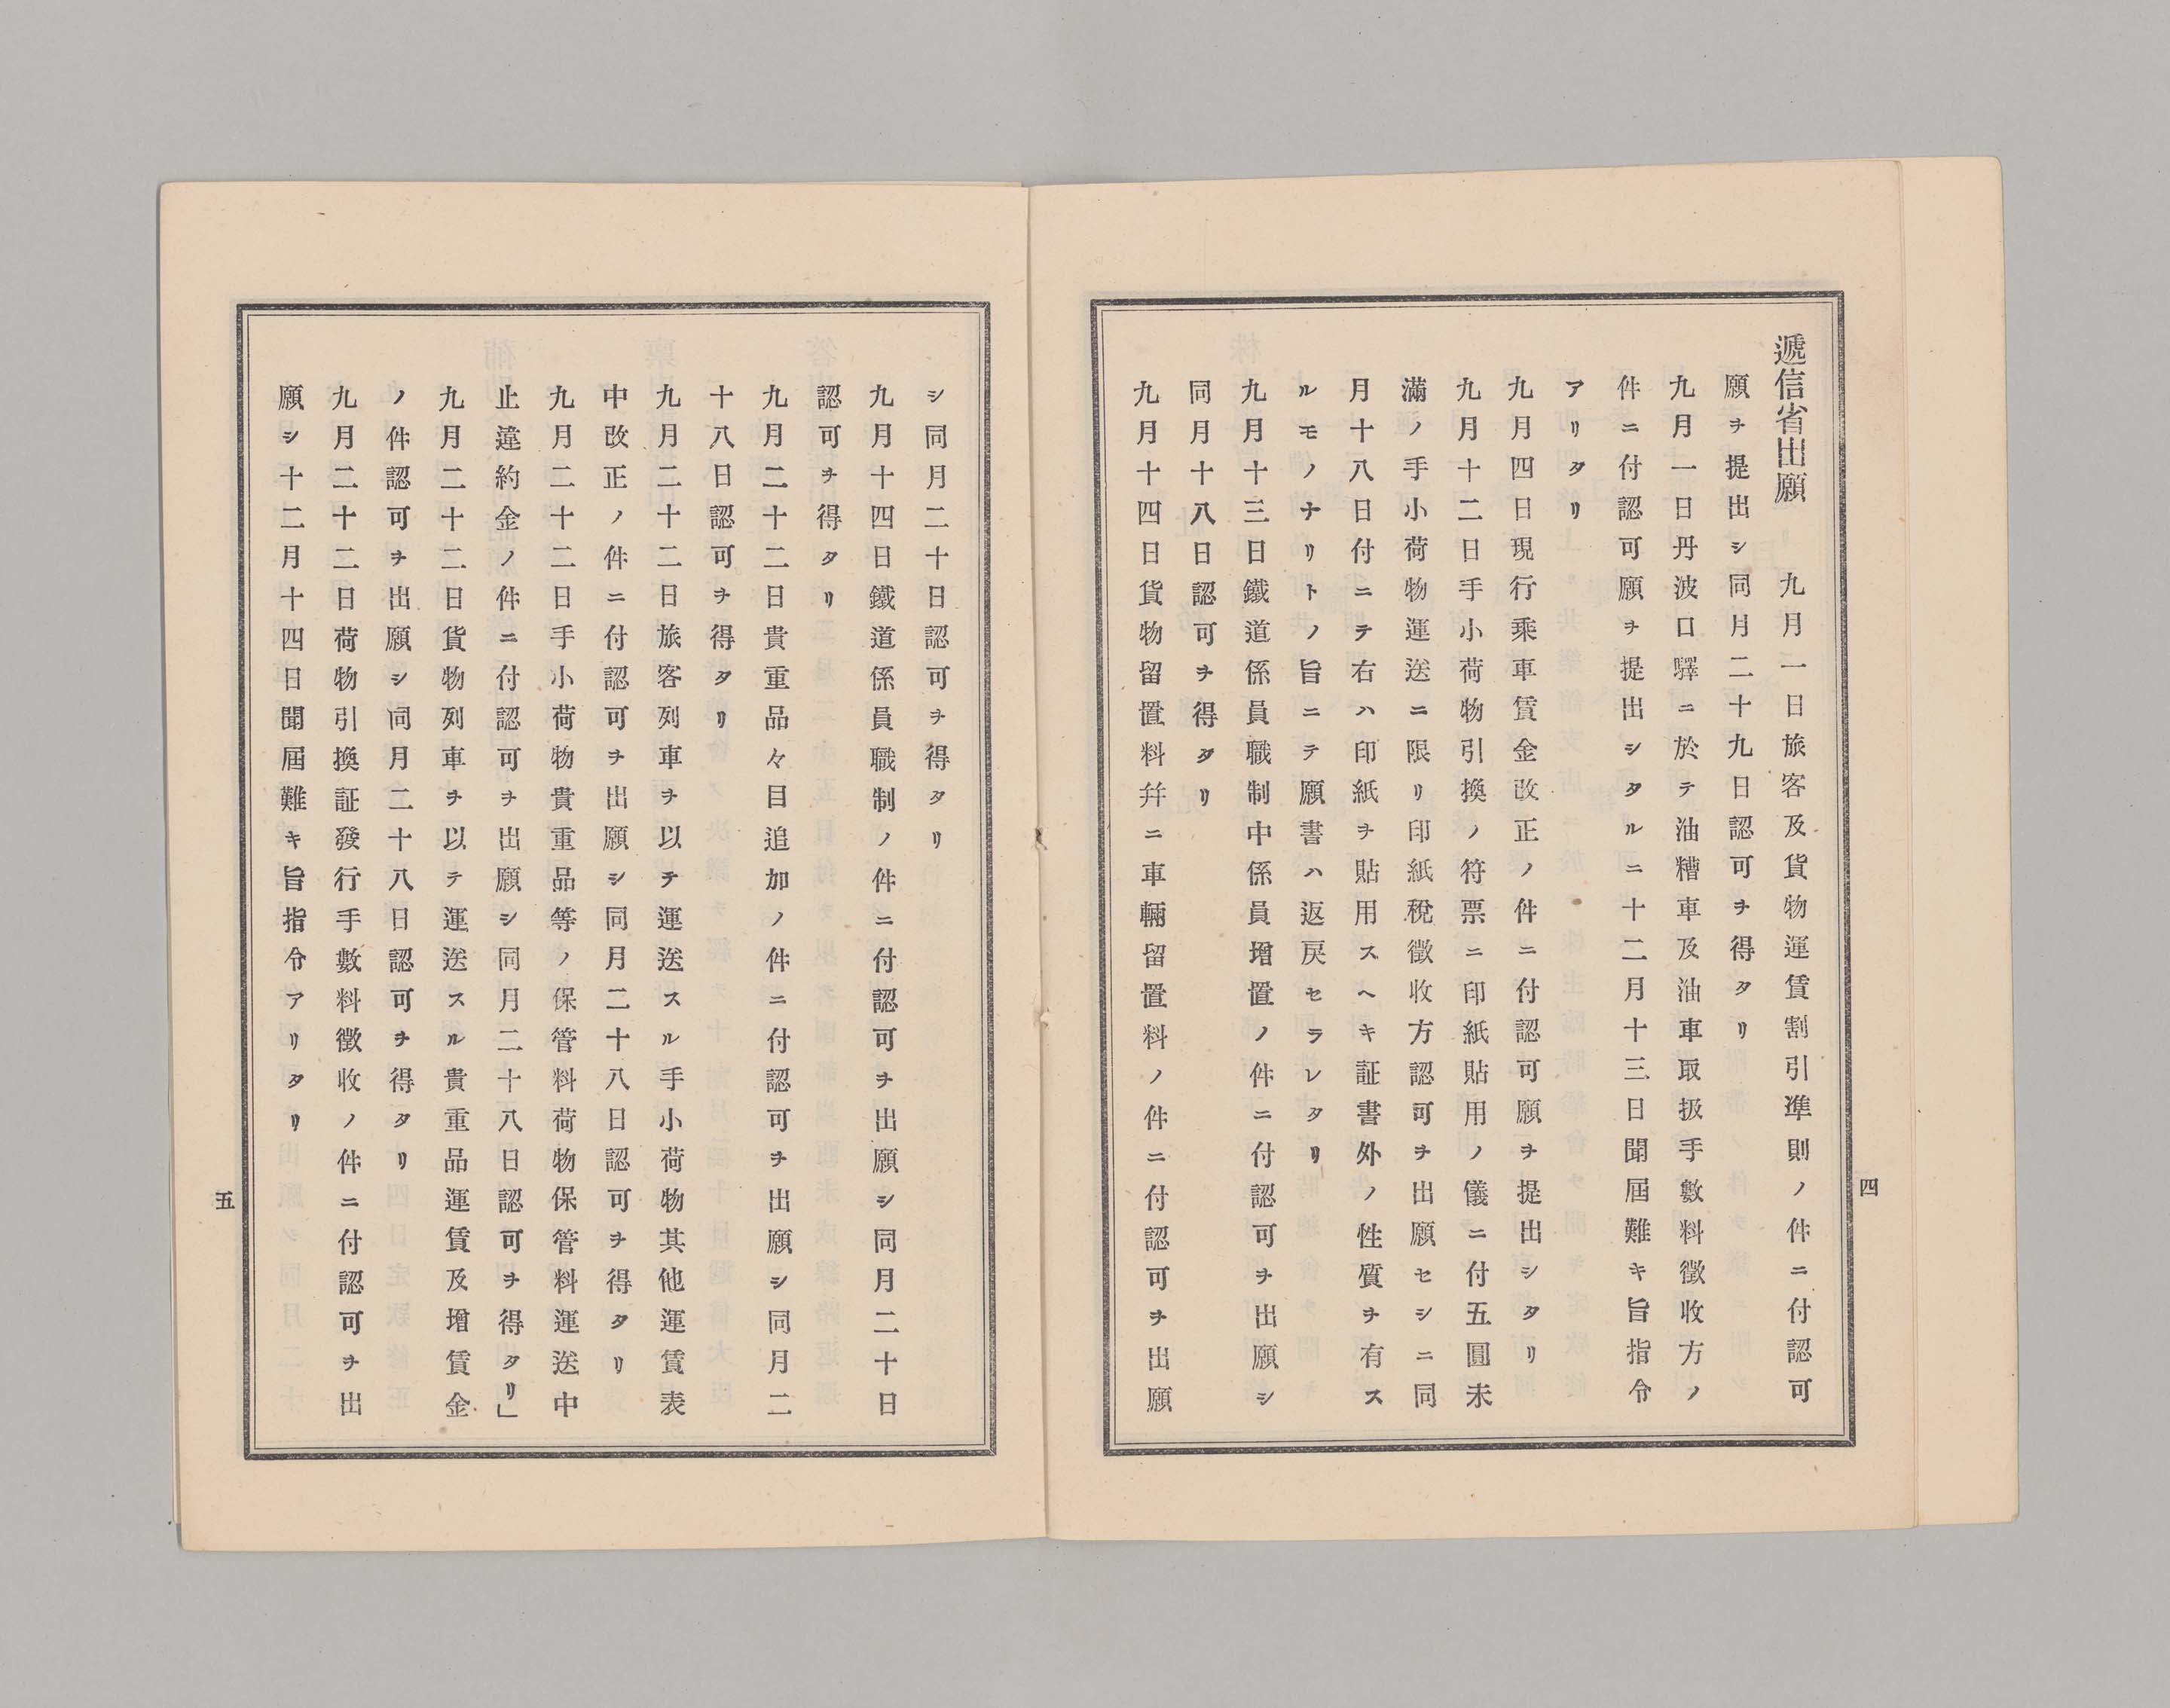 遞信省出願　九月一日旅客及貨物運賃割引準則ノ件ニ付認可
願ヲ提出シ同月二十九日認可ヲ得タリ
九月一日丹波口驛ニ於テ油糟車及油車取扱手數料徵收方ノ
件ニ付認可願ヲ提出シタルニ十二月十三日聞屆難キ旨指令
アリタリ
九月四日現行乘車賃金改正ノ件ニ付認可願ヲ提出シタリ
九月十二日手小荷物引換ノ符票ニ印紙貼用ノ儀ニ付五圓未
滿ノ手小荷物運送ニ限リ印紙稅徵收方認可ヲ出願セシニ同
月十八日付ニテ右ハ印紙ヲ貼用スヘキ証書外ノ性質ヲ有ス
ルモノナリトノ旨ニテ願書ハ返戻セラレタリ
九月十三日鐵道係員職制中係員增置ノ件ニ付認可ヲ出願シ
同月十八日認可ヲ得タリ
九月十四日貨物留置料幷ニ車輛留置料ノ件ニ付認可ヲ出願
四
シ同月二十日認可ヲ得タリ
九月十四日鐵道係員職制ノ件ニ付認可ヲ出願シ同月二十日
認可ヲ得タリ
九月二十二日貴重品々目追加ノ件ニ付認可ヲ出願シ同月二
十八日認可ヲ得タリ
九月二十二日旅客列車ヲ以テ運送スル手小荷物其他運賃表
中改正ノ件ニ付認可ヲ出願シ同月二十八日認可ヲ得タリ
九月二十二日手小荷物貴重品等ノ保管料荷物保管料運送中
止違約金ノ件ニ付認可ヲ出願シ同月二十八日認可ヲ得タリ」
九月二十二日貨物列車ヲ以テ運送スル貴重品運賃及增賃金
ノ件認可ヲ出願シ同月二十八日認可ヲ得タリ
九月二十二日荷物引換証發行手數料徵收ノ件ニ付認可ヲ出
願シ十二月十四日聞屆難キ旨指令アリタリ
五